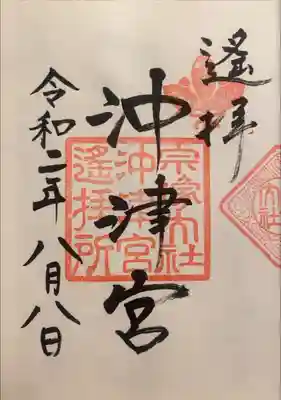 遙拝
沖津宮
令和二年 八月八日
宗像大社
沖津宮
遙拝所